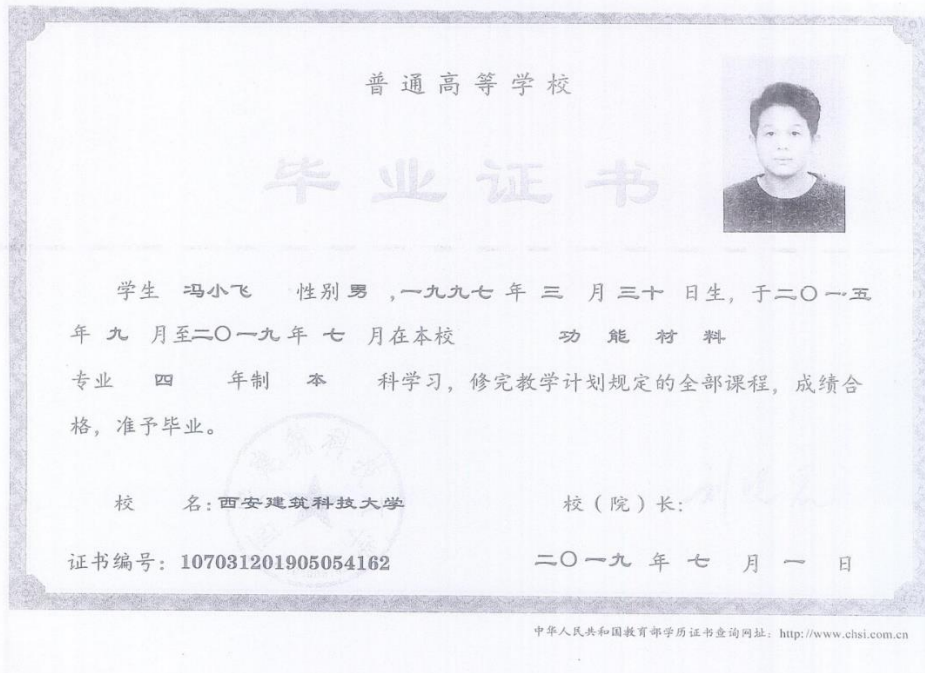 普通高等学校
毕业证书
学生 冯小飞 性别 男 ,一九九七 年 三 月 三十 日生，于二〇一五
年 九 月至二〇一九年 七 月在本校 功能材料
专业 四 年制 本 科学习，修完教学计划规定的全部课程，成绩合
格，准予毕业。
校 名：西安建筑科技大学 校（院）长：
证书编号：107031201905054162 二〇一九 年 七 月 一 日
中华人民共和国教育部学历证书查询网址：http://www.chsi.com.cn